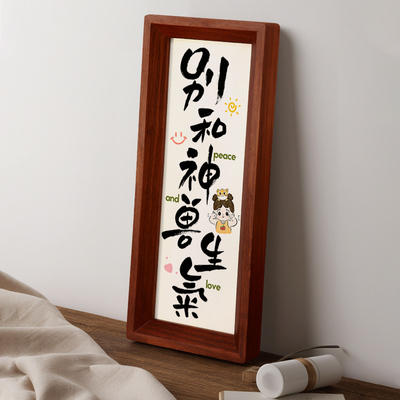 別和神兽生氣
peace
and
love